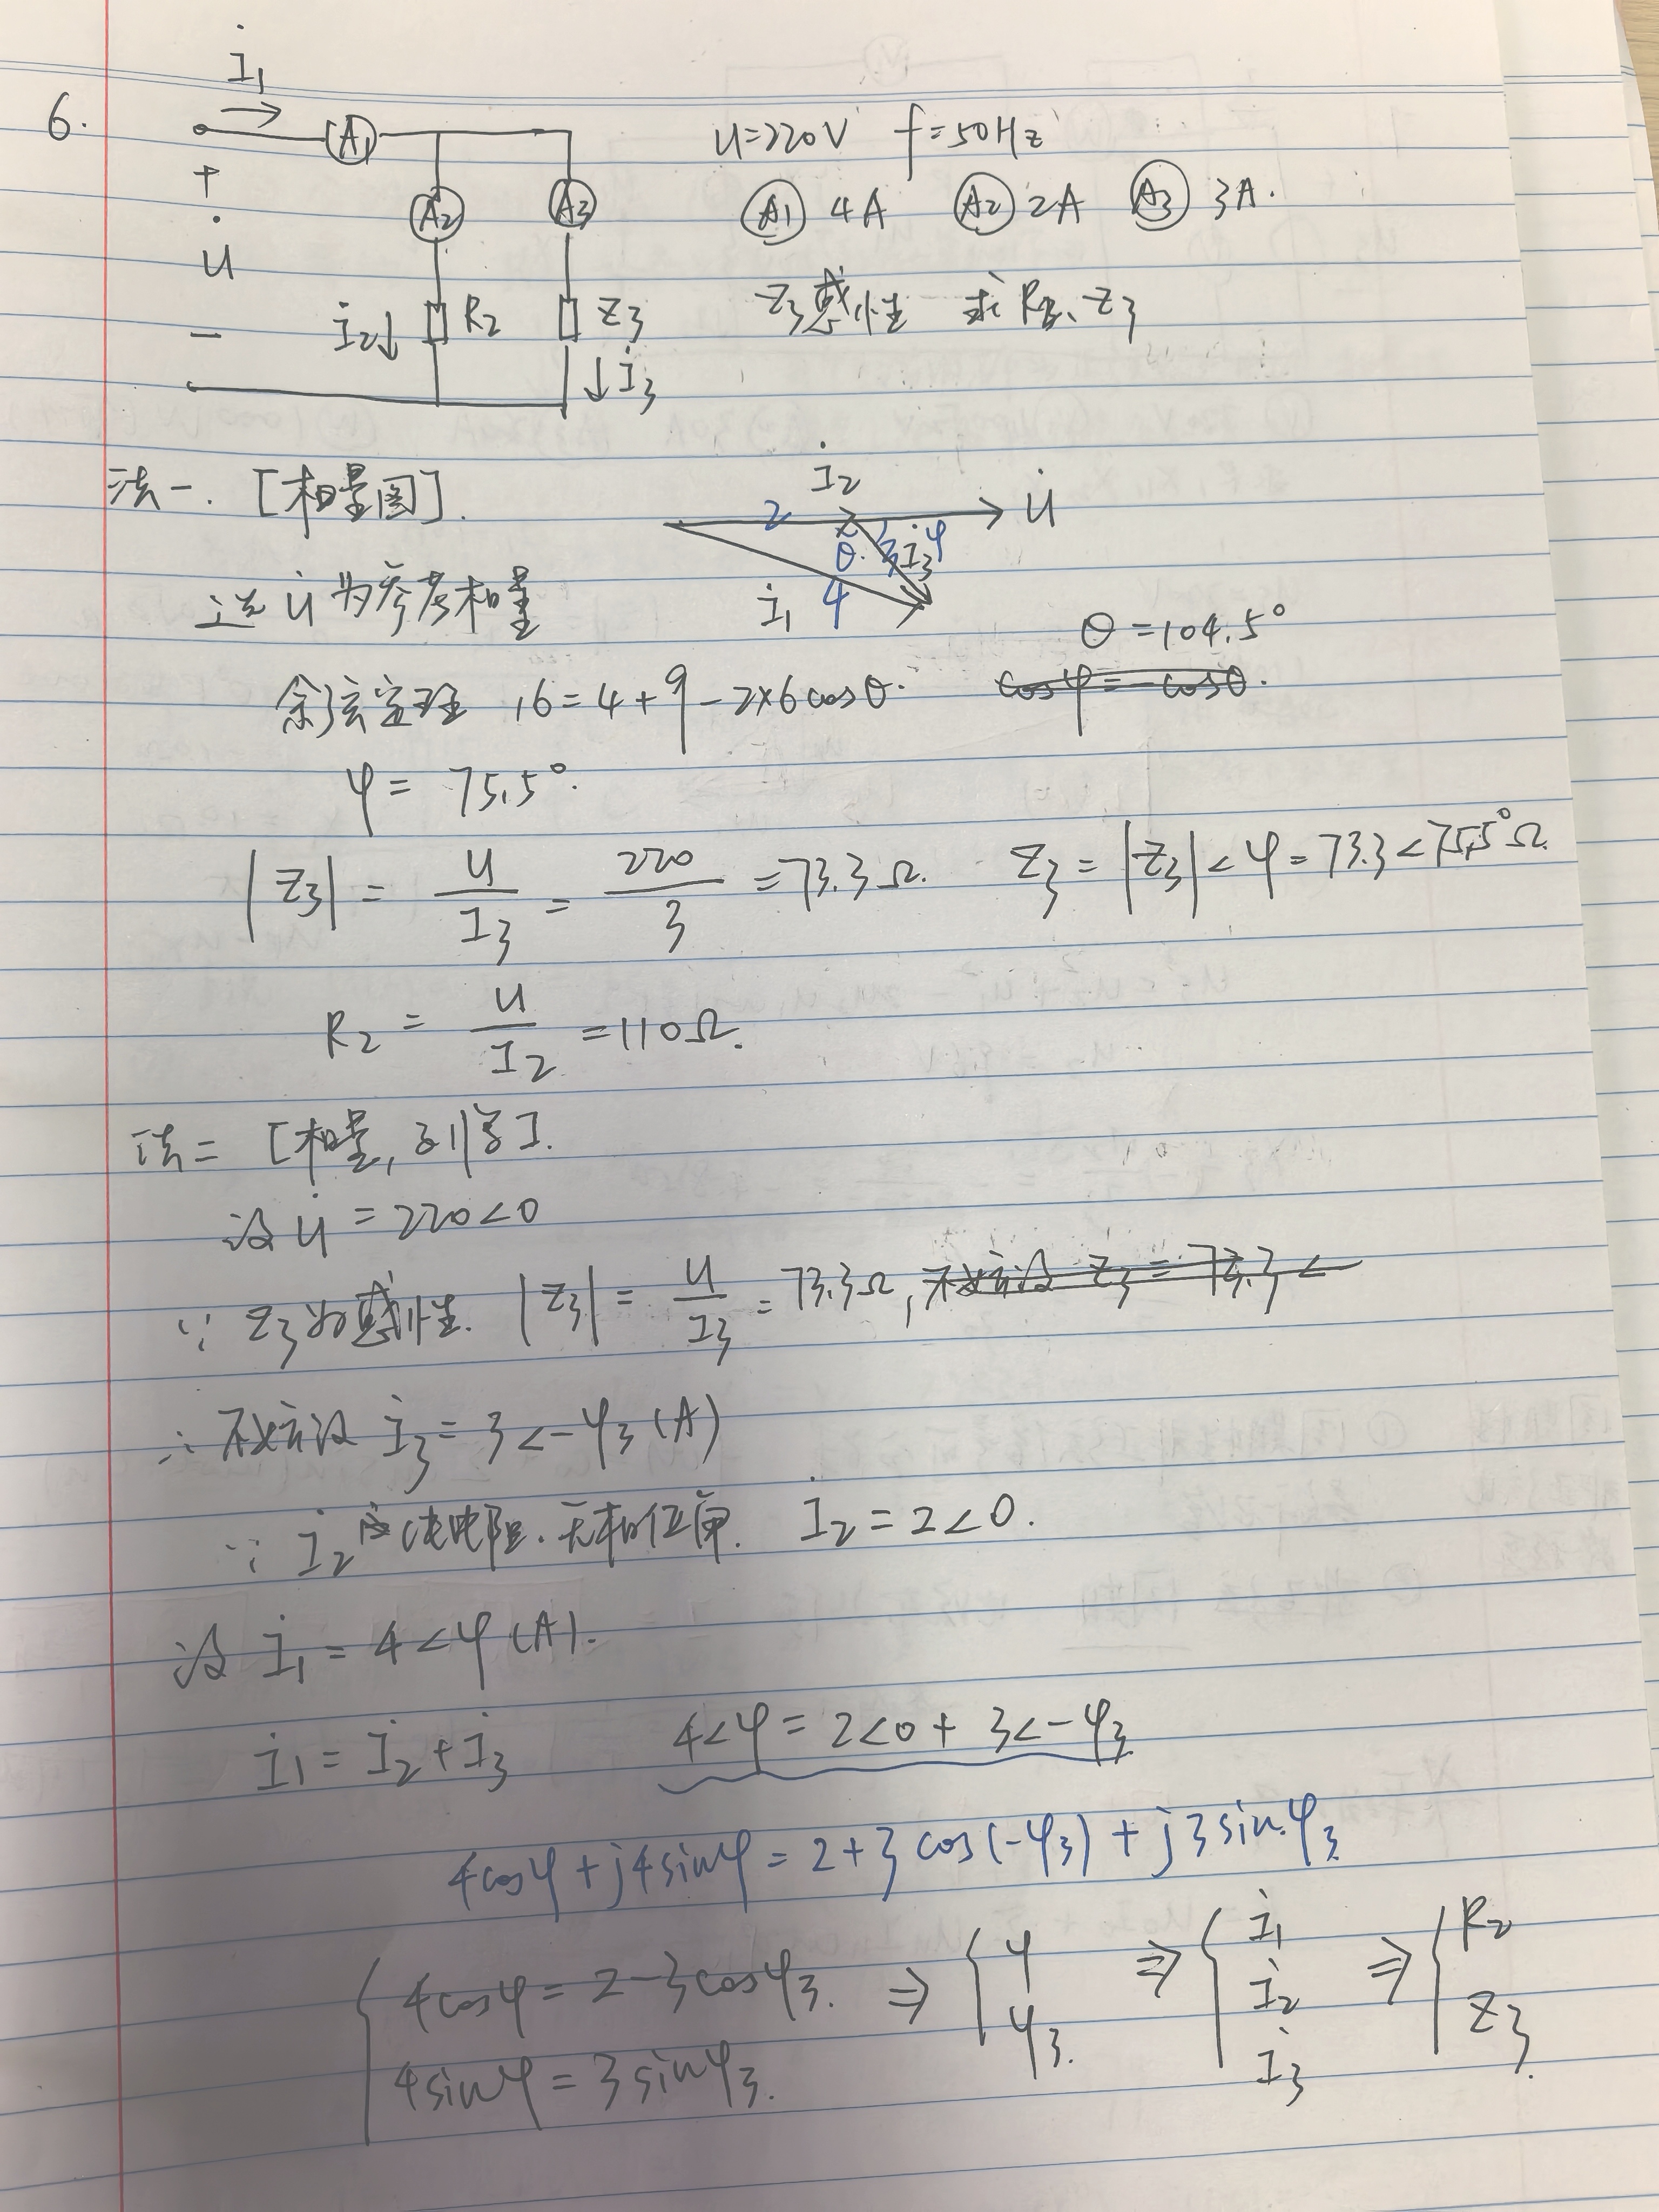 İ₁
6.
A₁
u=220V f=50Hz
+
A₂
A₃
A₁ 4A A₂ 2A A₃ 3A.
u̇
İ₂↓ R₂ Z₃
Z₃感性 求R₂、Z₃
−
↓İ₃
法一. [相量图].
İ₂
2
u̇
θ. 3 İ₃ φ
İ₁ 4
选u̇为参考相量
θ=104.5°
余弦定理 16=4+9-2×6cosθ.
cosφ=-cosθ.
φ= 75.5°.
|Z₃| = u/I₃ = 220/3 =73.3Ω. Z₃=|Z₃|<φ=73.3<75.5°Ω.
R₂ = u/I₂ =110Ω.
法二 [相量, 列写].
设u̇=220<0
∵ Z₃为感性. |Z₃| = u/I₃ = 73.3Ω, 不妨设 Z₃ = 73.3<
∴ 不妨设 İ₃=3<-φ₃(A)
∵ İ₂ 纯电阻. 无相位角. İ₂=2<0.
设 İ₁=4<φ(A).
İ₁=İ₂+İ₃ 4<φ=2<0+3<-φ₃
4cosφ+j4sinφ=2+3cos(-φ₃)+j3sinφ₃
{ 4cosφ=2-3cosφ₃. ⇒ { φ ⇒ { İ₁ ⇒ { R₂
İ₂
4sinφ=3sinφ₃. φ₃. İ₃ Z₃.